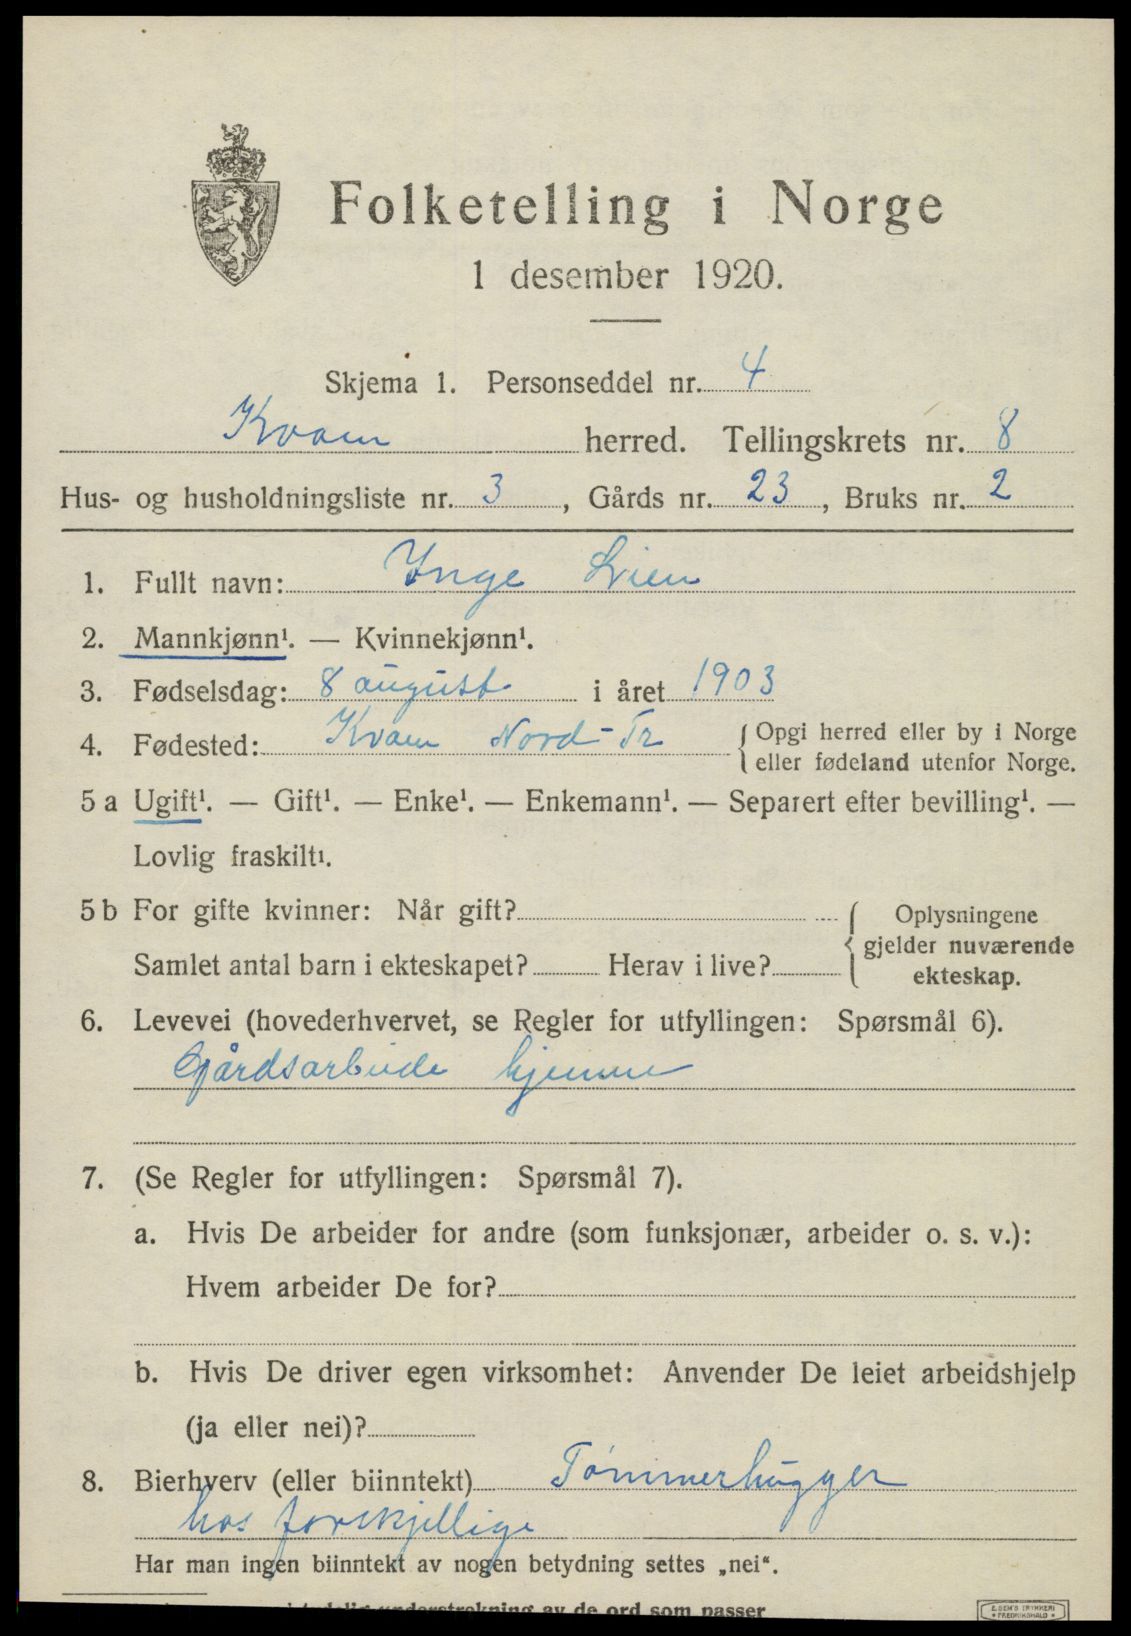 Folketelling i Norge
1 desember 1920.
Skjema 1. Personseddel nr. 4
Kvam herred. Tellingskrets nr. 8
Hus- og husholdningsliste nr. 3, Gårds nr. 23, Bruks nr. 2
1. Fullt navn: Inge Lien
2. Mannkjønn¹. — Kvinnekjønn¹.
3. Fødselsdag: 8 august i året 1903
4. Fødested: Kvam Nord-Tr {Opgi herred eller by i Norge
eller fødeland utenfor Norge.
5 a Ugift¹. — Gift¹. — Enke¹. — Enkemann¹. — Separert efter bevilling¹. —
Lovlig fraskilt¹.
5 b For gifte kvinner: Når gift?
Samlet antal barn i ekteskapet? Herav i live?
{Oplysningene
gjelder nuværende
ekteskap.
6. Levevei (hovederhvervet, se Regler for utfyllingen: Spørsmål 6).
Gårdsarbeide hjemme
7. (Se Regler for utfyllingen: Spørsmål 7).
a. Hvis De arbeider for andre (som funksjonær, arbeider o. s. v.):
Hvem arbeider De for?
b. Hvis De driver egen virksomhet: Anvender De leiet arbeidshjelp
(ja eller nei)?
8. Bierhverv (eller biinntekt) Tømmerhugger
hos forskjellige
Har man ingen biinntekt av nogen betydning settes „nei“.
understrekning av de ord som passer